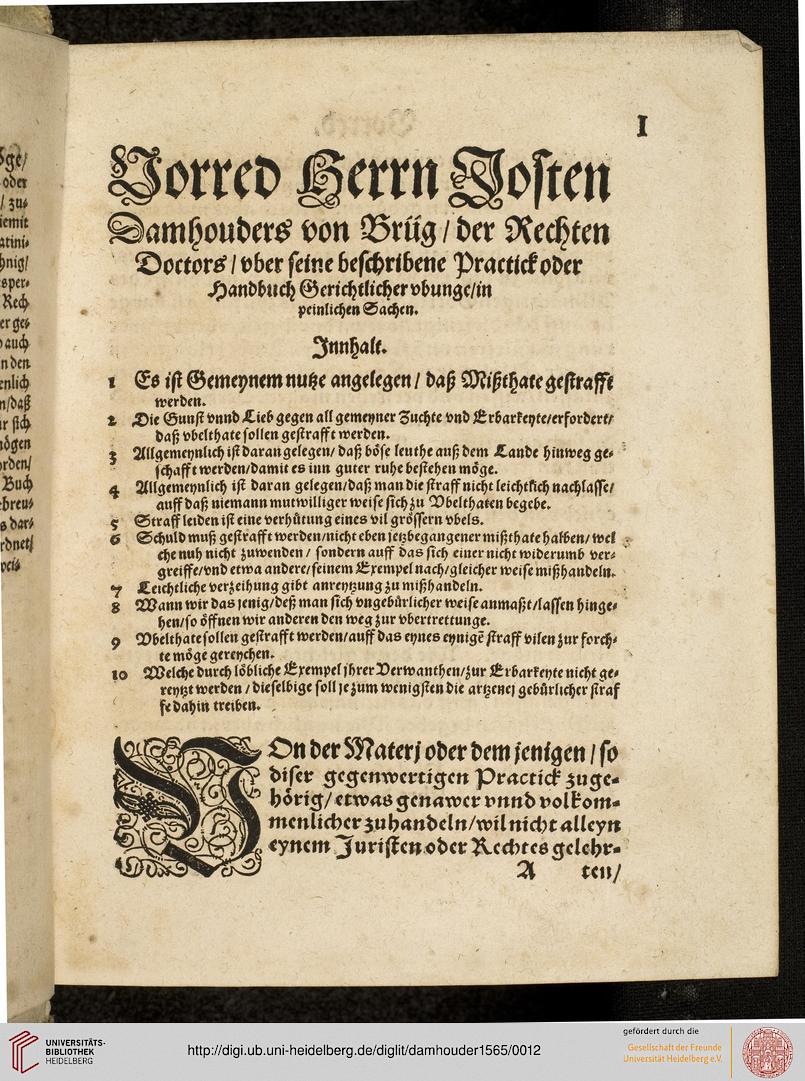 I
Vorred Herrn Josten
Damhouders von Brüg / der Rechten
Doctors / vber seine beschribene Practick oder
Handbuch Gerichtlicher vbunge/in
peinlichen Sachen.
Innhalt.
1 Es ist Gemeynem nutze angelegen / daß Mißthate gestrafft
werden.
2 Die Gunst vnnd Lieb gegen all gemeyner Zuchte vnd Erbarkeyte/erfordert/
daß vbelthate sollen gestrafft werden.
3 Allgemeynlich ist daran gelegen/ daß böse leuthe auß dem Lande hinweg ge-
schafft werden/damit es inn guter ruhe bestehen möge.
4 Allgemeynlich ist daran gelegen/daß man die straff nicht leichtlich nachlasse/
auff daß niemann mutwilliger weise sich zu Vbelthaten begebe.
5 Straff leiden ist eine verhütung eines vil grössern vbels.
6 Schuld muß gestrafft werden/nicht eben jetzbegangener mißthate halben/ wel
che nuh nicht zuwenden / sondern auff das sich einer nicht widerumb ver-
greiffe/vnd etwa andere/seinem Exempel nach/gleicher weise mißhandeln.
7 Leichtliche verzeihung gibt anreytzung zu mißhandeln.
8 Wann wir das jenig/deß man sich vngebürlicher weise anmaßt/lassen hinge-
hen/so öffnen wir anderen den weg zur vbertrettunge.
9 Vbelthate sollen gestrafft werden/auff das eynes eynigē straff vilen zur forch-
te möge gereychen.
10 Welche durch löbliche Exempel jhrer Verwanthen/zur Erbarkeyte nicht ge-
reytzt werden / dieselbige soll je zum wenigsten die artzenej gebürlicher straf
fe dahin treiben.
VOn der Materj oder dem jenigen / so
diser gegenwertigen Practick zuge-
hörig/ etwas genawer vnnd volkom-
menlicher zuhandeln/wil nicht alleyn
eynem Juristen oder Rechtes gelehr-
A ten/
ge/
oder
/ zu-
iemit
atini-
hnig/
sper-
Rech
er ge-
auch
n den
enlich
n/daß
ir sich
ögen
rden/
Buch
breu-
s dar-
rdnet/
UNIVERSITÄTS-
BIBLIOTHEK
HEIDELBERG
http://digi.ub.uni-heidelberg.de/diglit/damhouder1565/0012
gefördert durch die
Gesellschaft der Freunde
Universität Heidelberg e.V.